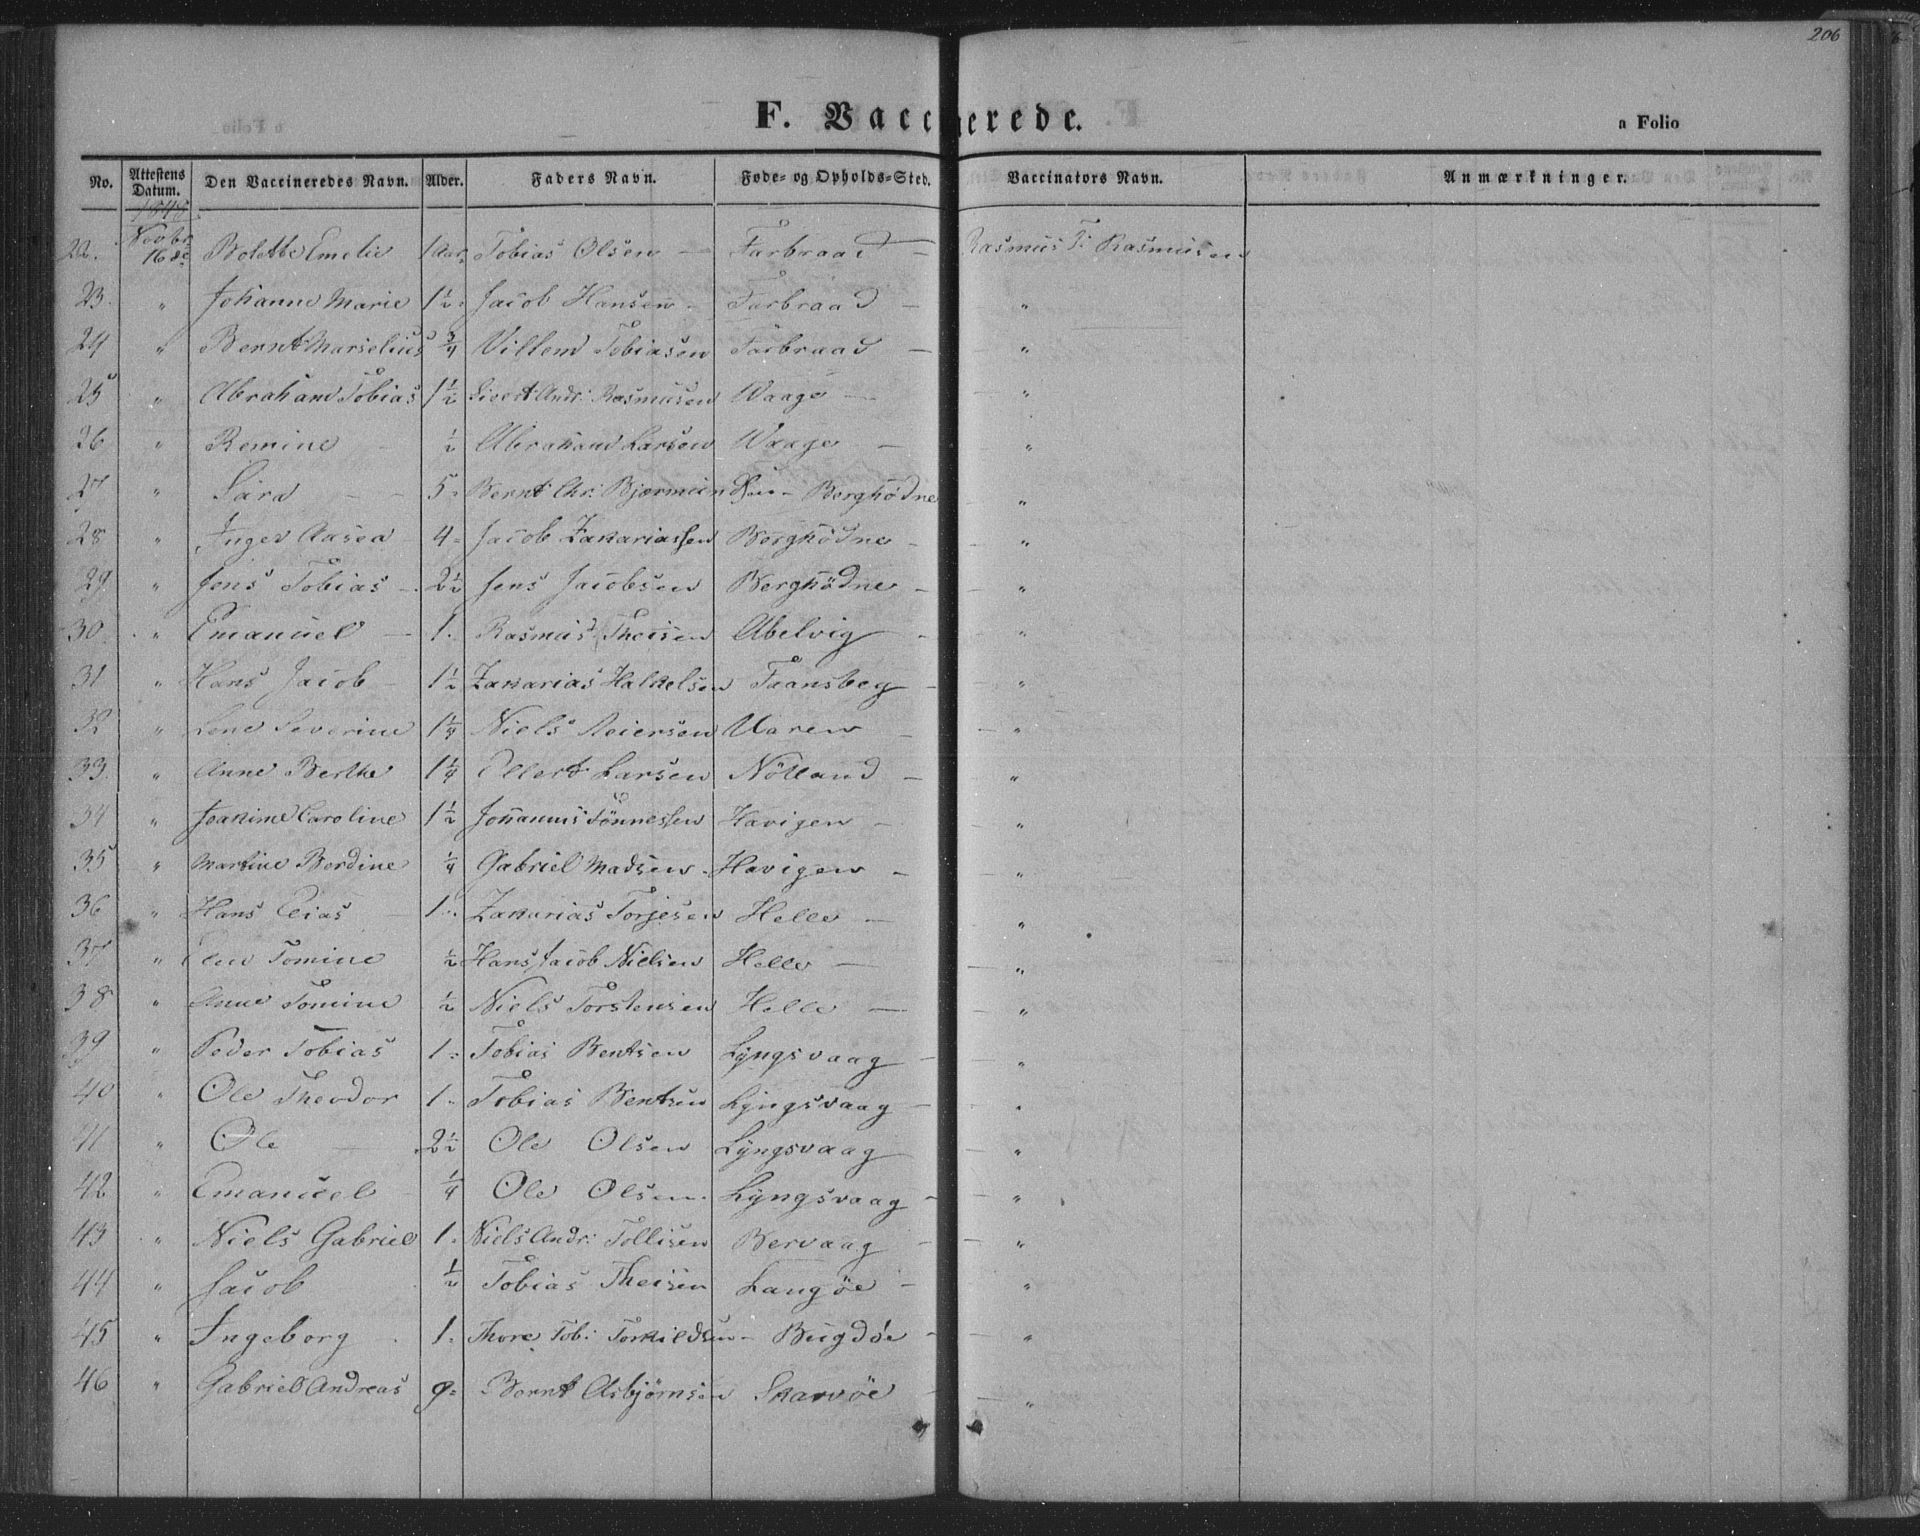 206
F. Vaccinerede.
a Folio
No. Attestens Datum. Den Vaccineredes Navn. Alder. Faders Navn. Føde- og Opholds-Sted. Vaccinators Navn. Anmærkninger.
1848
22. Novbr 16de Bolette Emelie 1 Aar Tobias Olsen - Farbraad - Rasmus T: Rasmusen
23. " Johanne Marie 1½ Jacob Hansen - Farbraad - "
24 " Bernt Marselius ¾ Villem Tobiasen Farbraad - "
25 " Abraham Tobias 1½ Sivert Andr: Rasmusen Waage - "
26 " Remine - ½ Abraham Larsen Waage - "
27 " Sara - - 5 Bernt Chr: Bjørmundsen - Berghödne "
28 " Inger Aasea - 4 Jacob Zakariassen Berghödne - "
29 " Jens Tobias - 2½ Jens Jacobsen Berghödne - "
30 " Emanuel - 1 Rasmus Theisen Abelvig - "
31 " Hans Jacob - 1½ Zakarias Halkelsen Faansbeg - "
32 " Lene Severine 1¼ Niels Reiersen Uaren - "
33. " Anne Berthe 1¼ Ellert Larsen Nötland - "
34 " Joakime Caroline 1½ Johannis Tönnessen Havigen - "
35 " Martine Bordine ¼ Gabriel Madsen - Havigen - "
36 " Hans Elias - 1 Zakarias Torjesen Helle - "
37 " Elen Tomine ½ Hans Jacob Nielsen Helle - "
38 " Anne Tomine ½ Niels Torstensen Helle - "
39 " Peder Tobias 1 Tobias Bentsen Lyngsvaag - "
40 " Ole Theodor 1 Tobias Bentsen Lyngsvaag - "
41 " Ole - 2½ Ole Olsen Lyngsvaag "
42 " Emanuel - ¼ Ole Olsen Lyngsvaag - "
43 " Niels Gabriel 1 Niels Andr: Tollisen Bervaag - "
44 " Jacob ½ Tobias Theisen Langöe - "
45 " Ingeborg 1 Thore Tob: Torkildsen - Bugdöe - "
46 " Gabriel Andreas 9 Bernt Asbjørnsen Skarvöe "